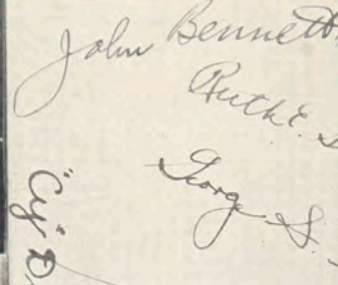 John Bennett
Ruth E.
George S.
"Cy"